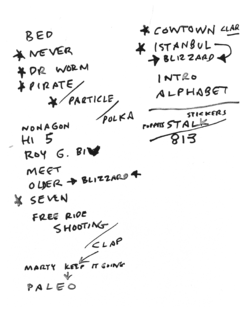 BED
* NEVER
* DR WORM
* PIRATE
* PARTICLE
POLKA
NONAGON
HI 5
ROY G. BIV
MEET
OLDER → BLIZZARD *
* SEVEN
FREE RIDE
SHOOTING
CLAP
MARTY KEEP IT GOING
↓
PALEO
* COWTOWN CLAR
* ISTANBUL
→ BLIZZARD
INTRO
ALPHABET
STICKERS
PUPPETS STALK
813